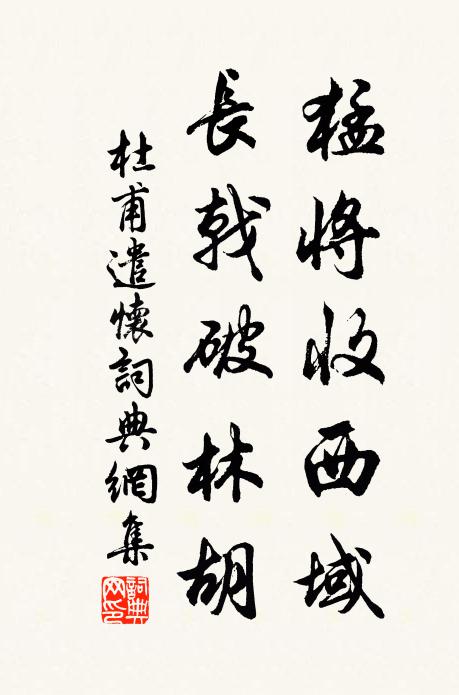 猛將收西域
長戟破林胡
杜甫遣懷詞典網集
詞典網印